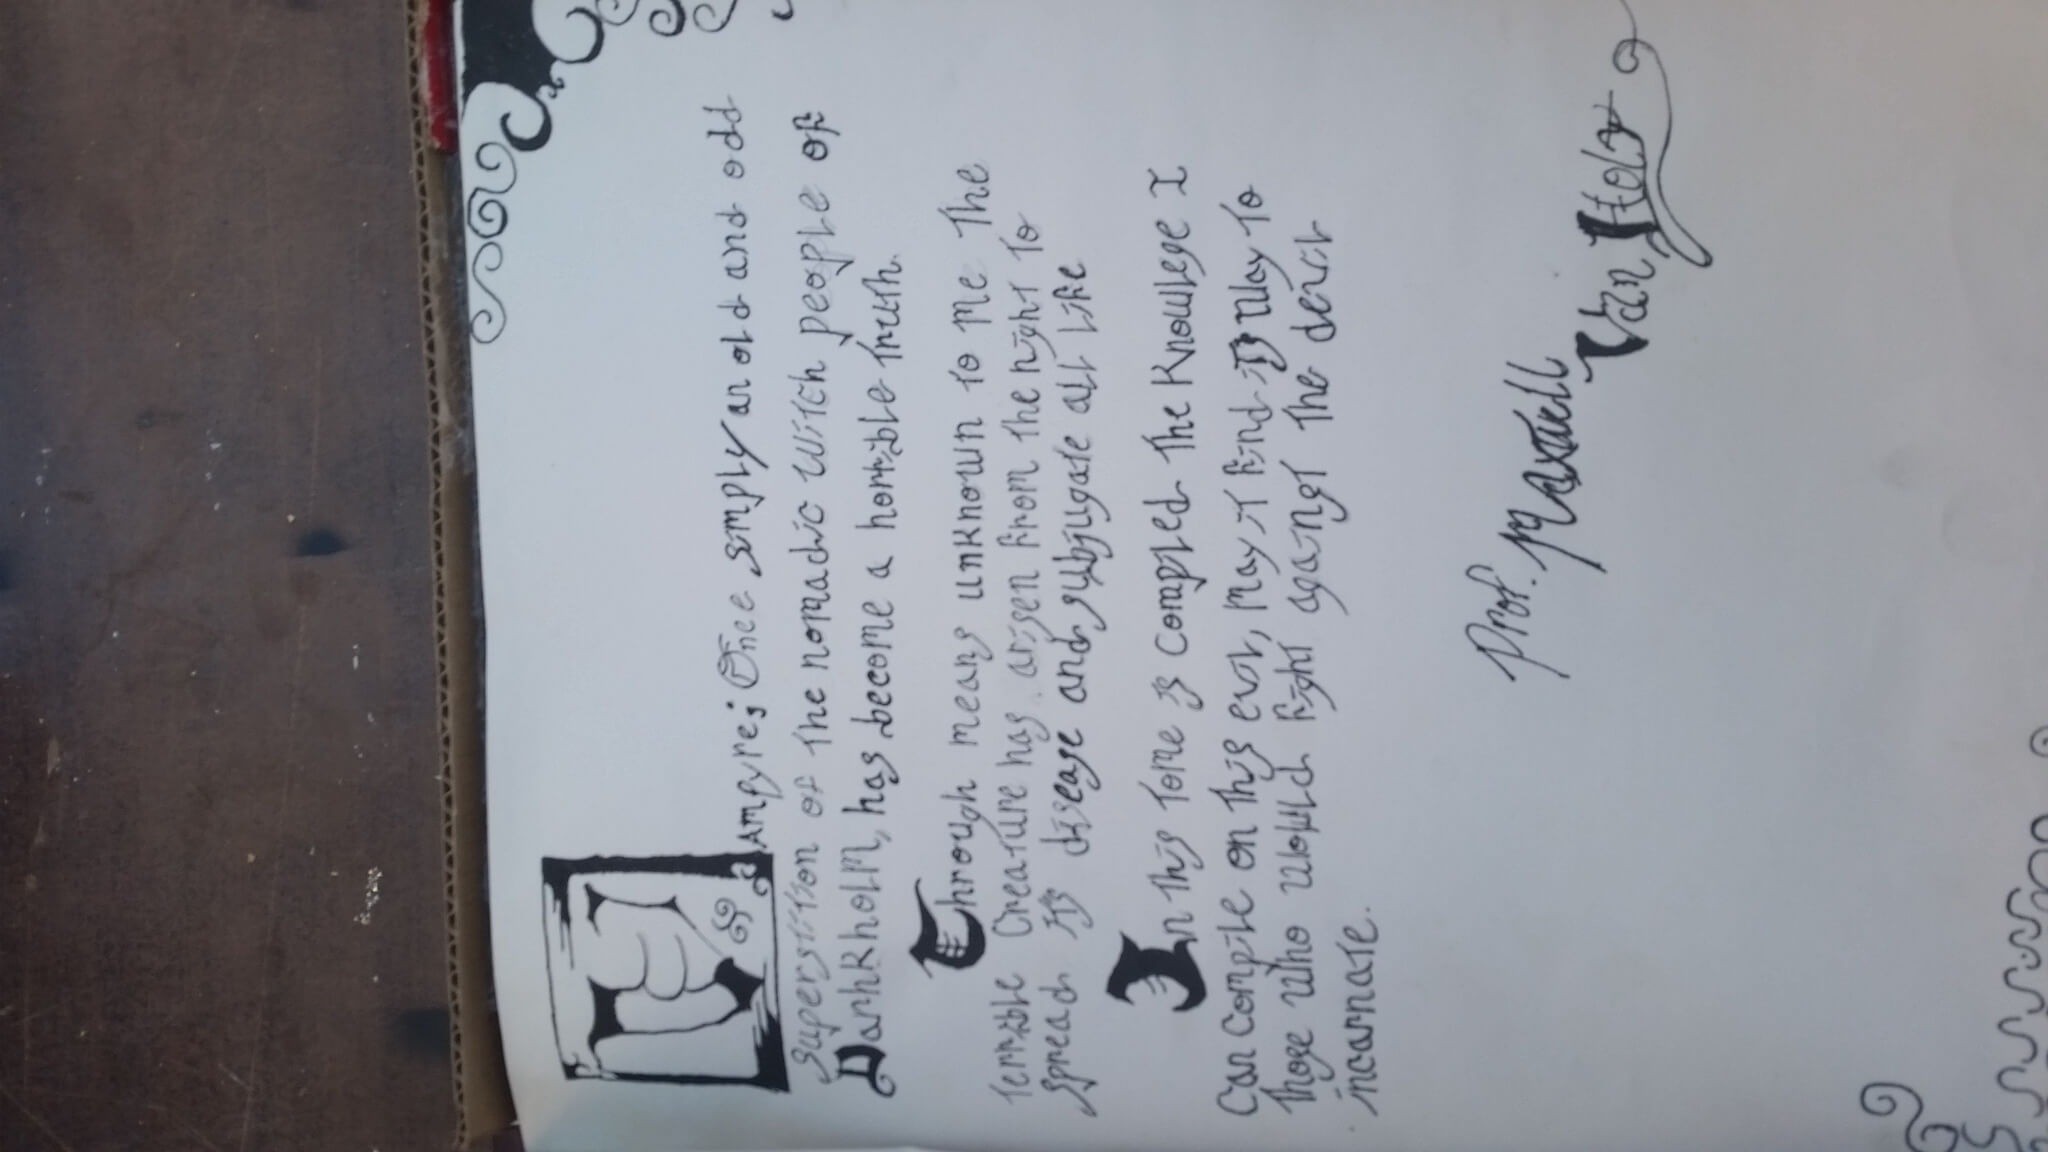 VAmpyre; Once simply an old and odd
superstition of the nomadic witch people of
Darkholm, has become a horrible truth.
Through means unknown to me the
terrible Creature has arisen from the night to
spread its disease and subjugate all life
In this tome is compiled the Knowlege I
Can compile on this evil, may it find its way to
those who would fight against the devil
incarnate.
Prof. Maxwell
Van Holt